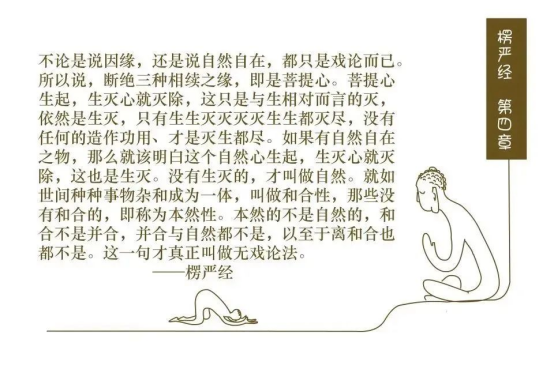 不论是说因缘，还是说自然自在，都只是戏论而已。
所以说，断绝三种相续之缘，即是菩提心。菩提心
生起，生灭心就灭除，这只是与生相对而言的灭，
依然是生灭，只有生生灭灭灭灭生生都灭尽，没有
任何的造作功用、才是灭生都尽。如果有自然自在
之物，那么就该明白这个自然心生起，生灭心就灭
除，这也是生灭。没有生灭的，才叫做自然。就如
世间种种事物杂和成为一体，叫做和合性，那些没
有和合的，即称为本然性。本然的不是自然的，和
合不是并合，并合与自然都不是，以至于离和合也
都不是。这一句才真正叫做无戏论法。
——楞严经
楞严经 第四章